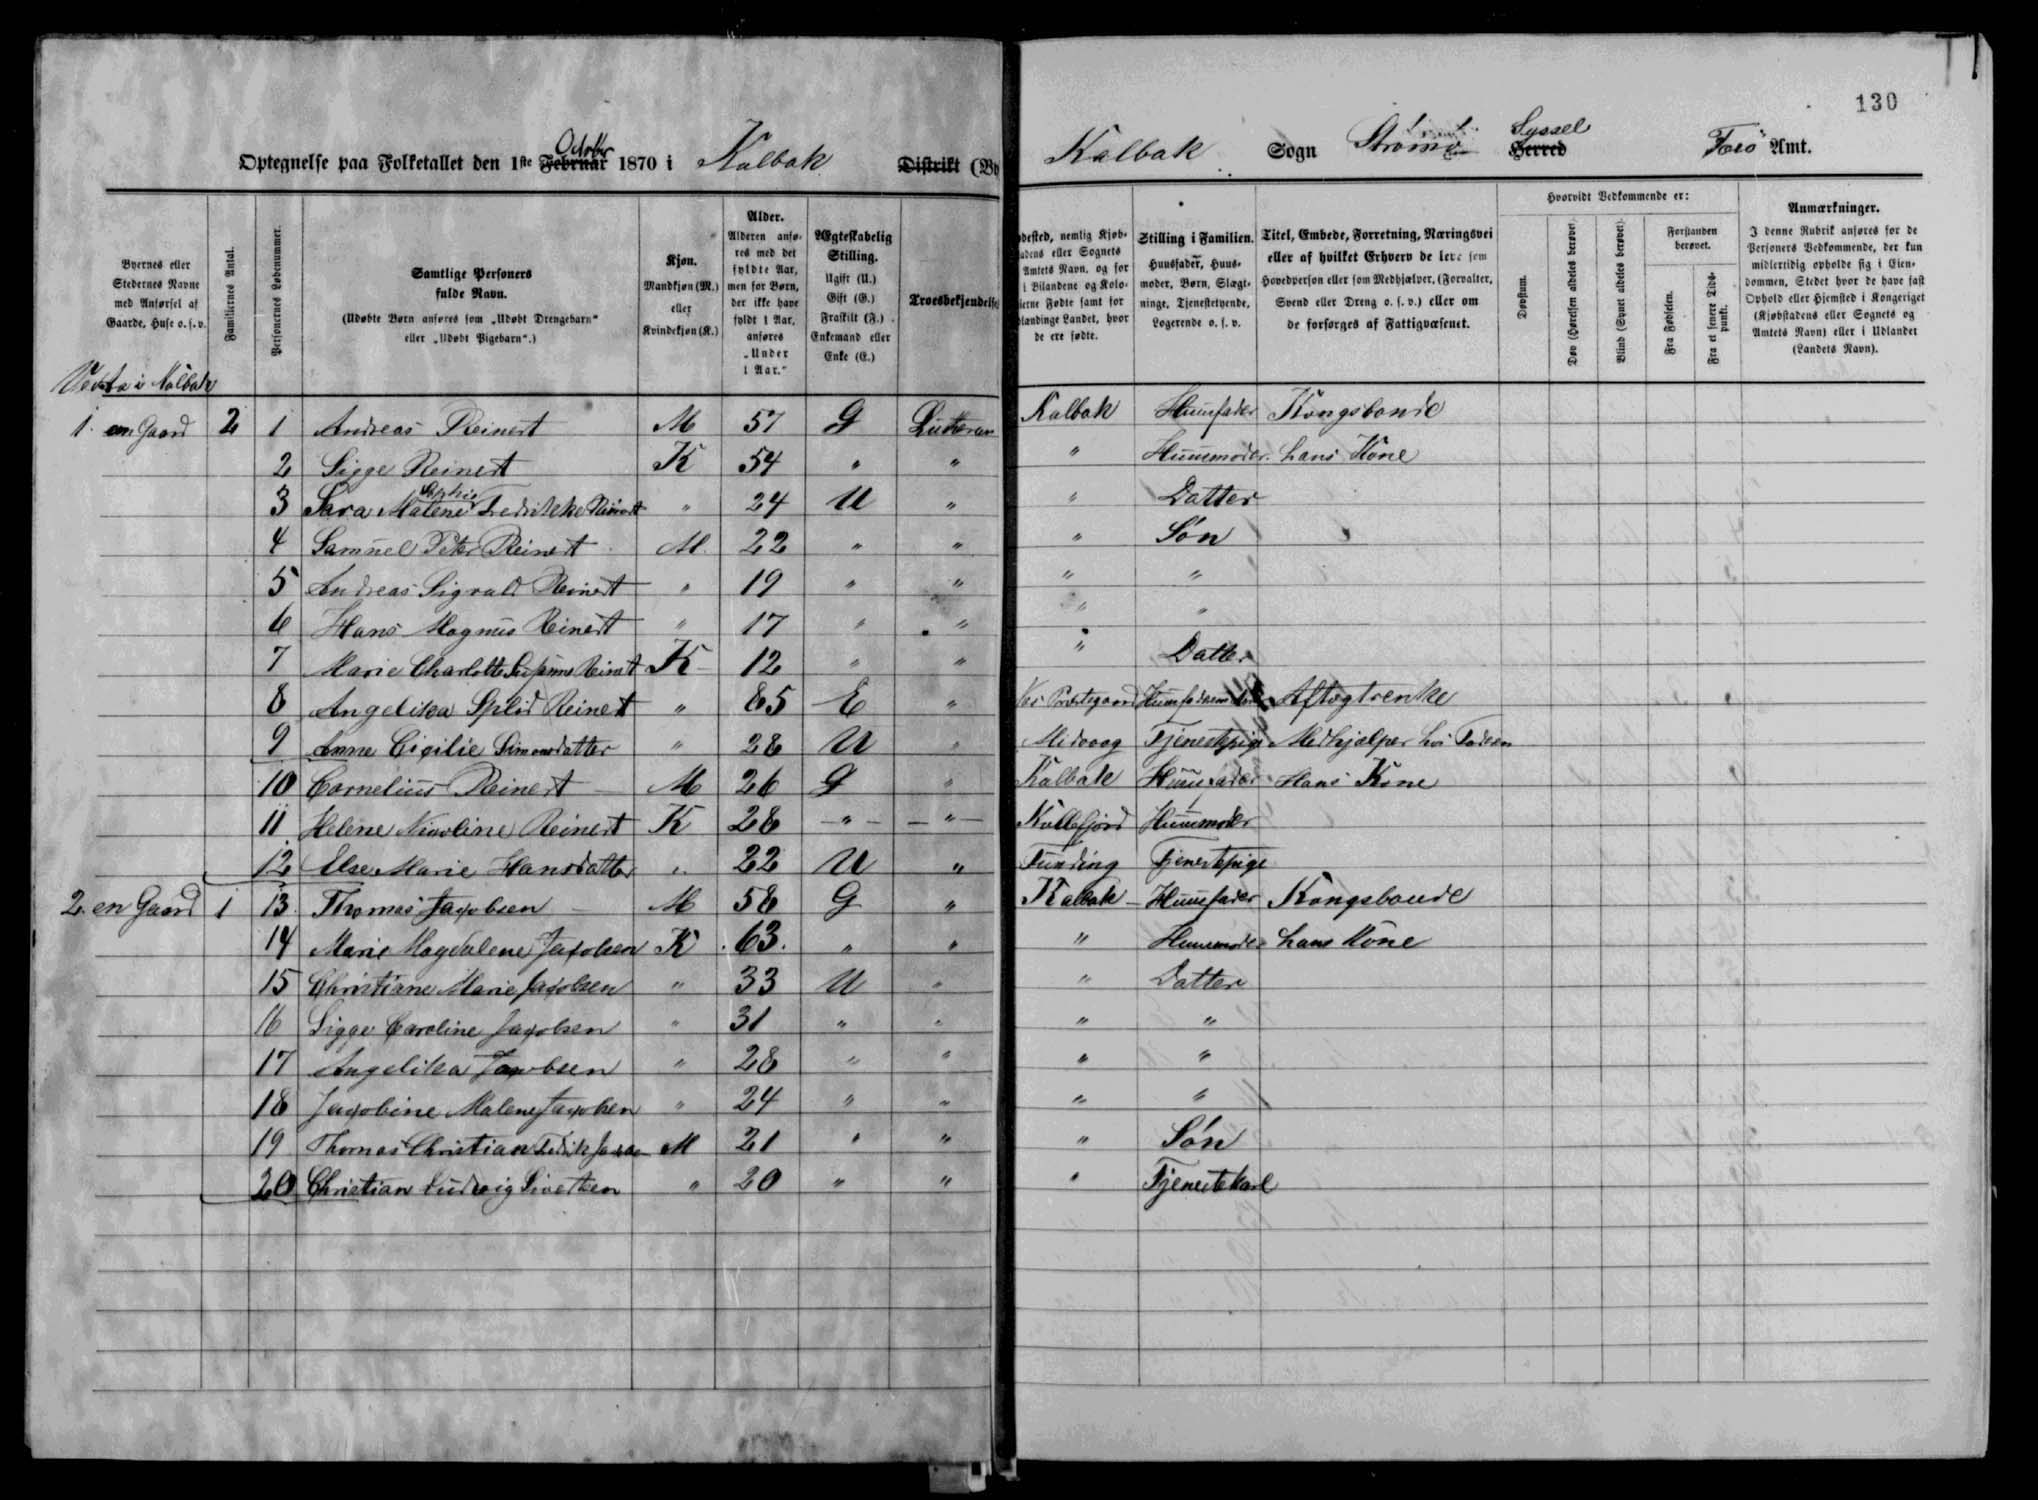 130
Optegnelse paa Folketallet den 1ste Februar October 1870 i Kalbak Distrikt (By
Kalbak Sogn Strømø Herred Syssel Færø Amt.
Byernes eller Stedernes Navne med Anførsel af Gaarde, Huse o. s. v.
Familiernes Antal.
Personernes Løbenummer.
Samtlige Personers fulde Navn.
(Udøbte Børn anføres som „Udøbt Drengebarn“ eller „Udøbt Pigebarn“.)
Kjøn.
Mandkjøn (M.) eller Kvindekjøn (K.)
Alder.
Alderen anføres med det fyldte Aar, men for Børn, der ikke have fyldt 1 Aar, anføres „Under 1 Aar.“
Ægteskabelig Stilling.
Ugift (U.) Gift (G.) Fraskilt (F.) Enkemand eller Enke (E.)
Troesbekjendelse
ødested, nemlig Kjøb-
adens eller Sognets
Amtets Navn, og for
i Bilandene og Kolo-
ierne Fødte samt for
lændinge Landet, hvor
de ere fødte.
Stilling i Familien.
Huusfader, Huusmoder, Børn, Slægtninge, Tjenestetyende, Logerende o. s. v.
Titel, Embede, Forretning, Næringsvei eller af hvilket Erhverv de leve som Hovedperson eller som Medhjælper, (Forvalter, Svend eller Dreng o. s. v.) eller om de forsørges af Fattigvæsenet.
Hvorvidt Vedkommende er:
Døvstum.
Døv (Hørelsen aldeles berøvet).
Blind (Synet aldeles berøvet).
Forstanden berøvet.
Fra Fødselen.
Fra et senere Tidspunkt.
Anmærkninger.
I denne Rubrik anføres for de Personers Vedkommende, der kun midlertidig opholde sig i Eiendommen, Stedet hvor de have fast Ophold eller Hjemsted i Kongeriget (Kjøbstadens eller Sognets og Amtets Navn) eller i Udlandet (Landets Navn).
i Kalbak
1. en Gaard 2 1 Andreas Reinert M 57 G Lutheran Kalbak Huusfader Kongsbonde
2 Sigge Reinert K 54 " " " Huusmoder hans Kone
3 Sara Malene Sophie Fredrikke Reinert " 24 U " " Datter
4 Samuel Peter Reinert M. 22 " " " Søn
5 Andreas Sigvald Reinert " 19 " " " "
6 Hans Magnus Reinert " 17 " " " "
7 Marie Charlotte Susanne Reinert K 12 " " " Datter
8 Angelika Splid Reinert " 85 E " Præstegaard Aftægtsenke
9 Anne Cicilie Simonsdatter " 28 U " Midvaag Tjenestepige Medhjælper hos
10 Cornelius Reinert M 26 G " Kalbak Huusfader Hans Kone
11 Helene Nicoline Reinert K 28 " " Kollefjord Huusmoder
12 Else Marie Hansdatter " 22 U " Funding Tjenestepige
2. en Gaard 1 13. Thomas Jacobsen M 58 G " Kalbak Huusfader Kongsbonde
14 Marie Magdalene Jacobsen K 63. " " " Huusmoder hans Kone
15 Christiane Marie Jacobsen " 33 U " " Datter
16 Sigge Caroline Jacobsen " 31 " " " "
17 Angelika Jacobsen " 28 " " " "
18 Jacobine Malene Jacobsen " 24 " " " "
19 Thomas Christian Fredrik M 21 " " " Søn
20 Christian Ludvig Sivertsen " 20 " " " Tjenestekarl